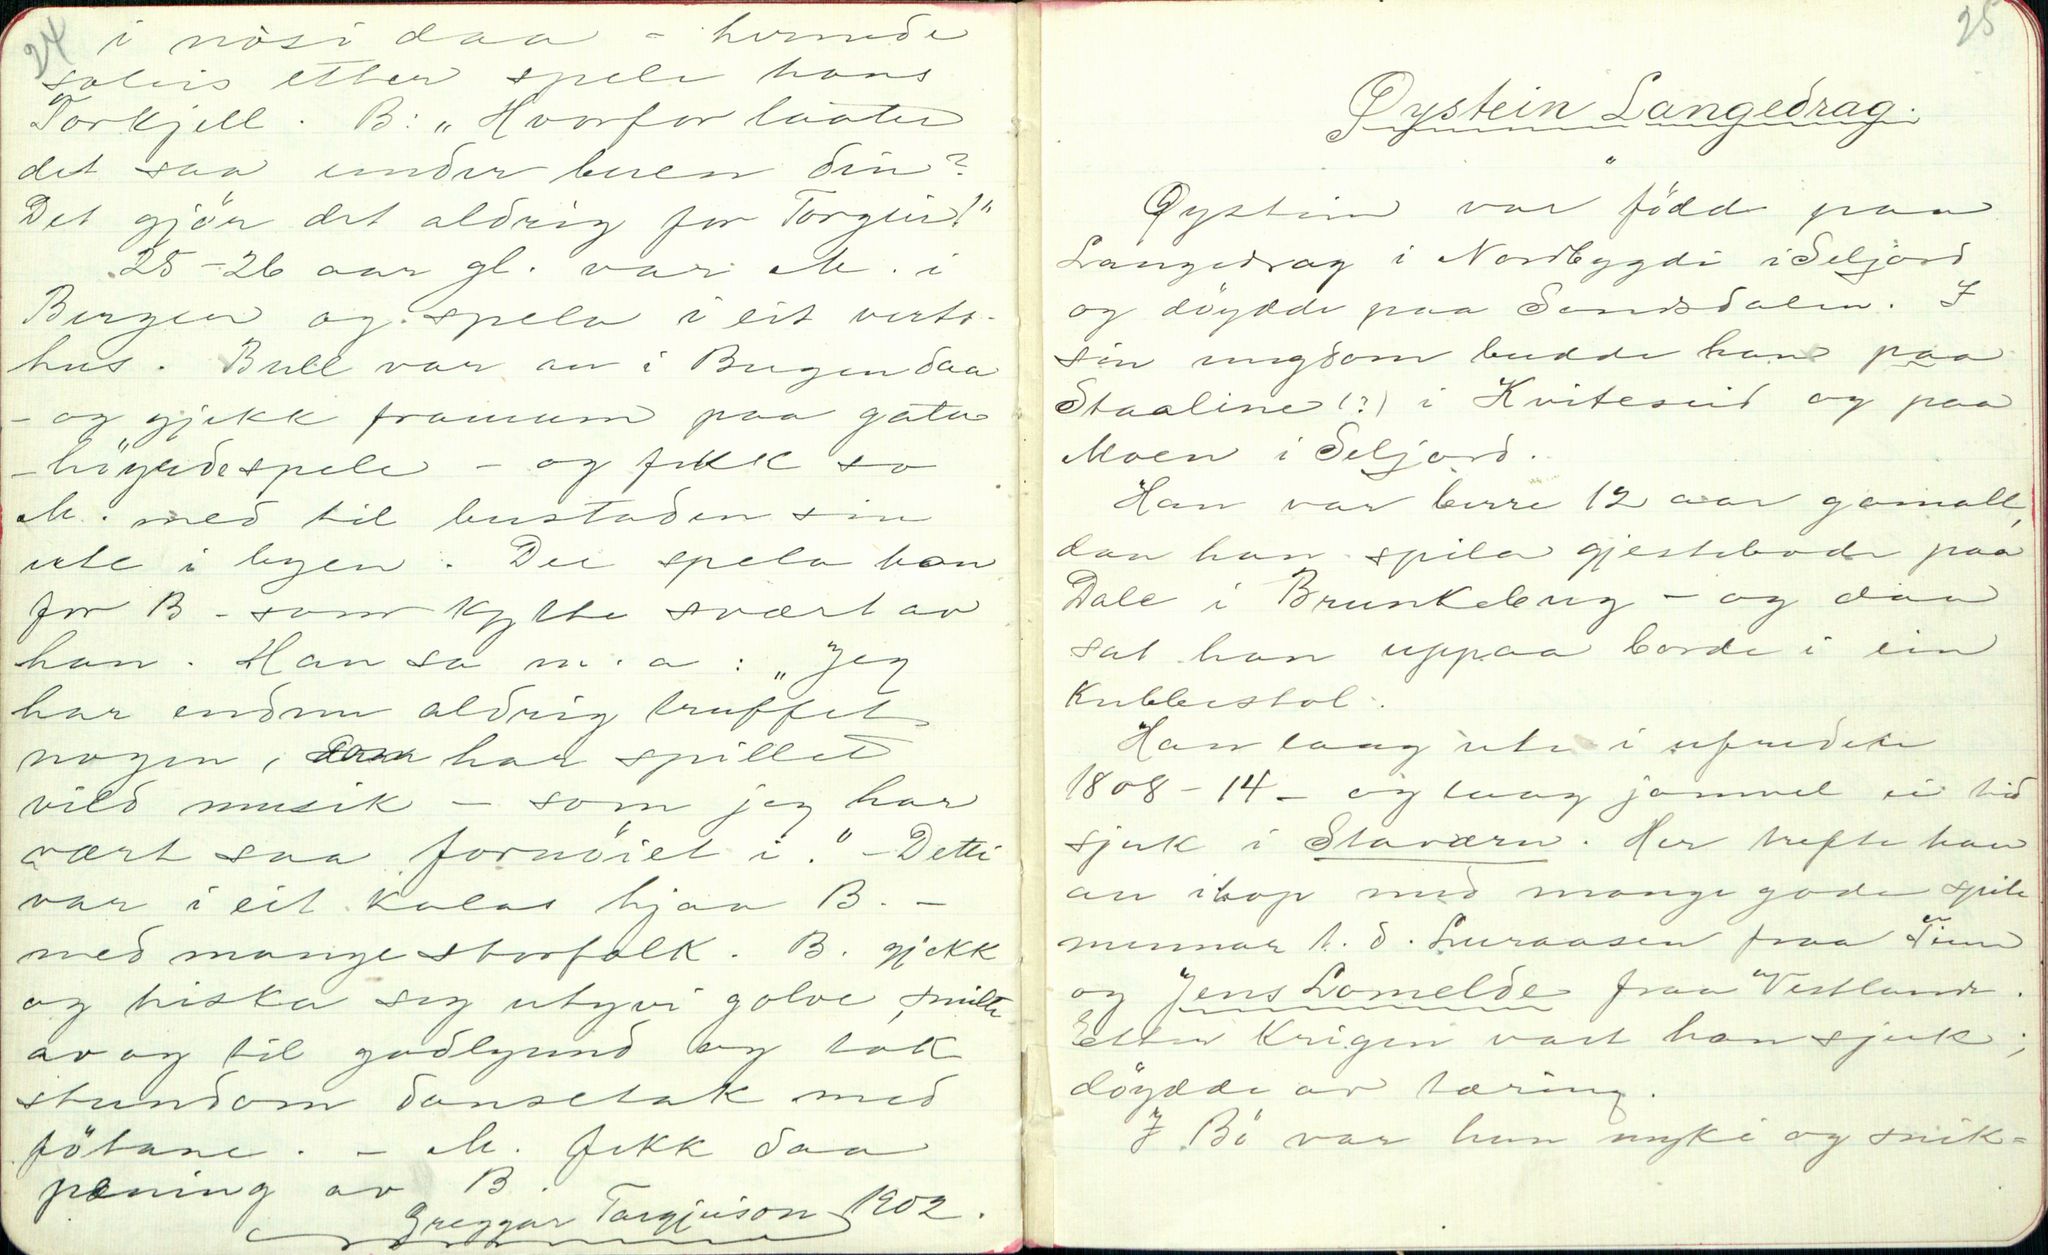 24
i nösi daa - hermde
soleis etter spele hans
Torkjell. B: „Hvorfor laater
det saa under buen din?
Det gjör det aldrig for Torgeir!"
25-26 aar gl. var M. i
Bergen og spela i eit verts-
hus. Bull var au i Bergen daa
- og gjekk framum paa gata
- höyrde spele - og fekk so
M. med til bustaden sin
ute i byen. Der spela han
for B - som kytte svært av
han. Han sa m.a: „Jeg
har endnu aldrig truffet
nogen, som har spillet
vild musik - som jeg har
vært saa fornöiet i." - Dette
var i eit kalas hjaa B. -
med mange storfolk. B. gjekk
og hiska seg utyvi golve, smilte
av og til godlynd og tok
stundom dansetak med
fötane. - M. fekk daa
pening av B.
Greggar Targjeison 1902.
25
Øystein Langedrag.
Øystein var född paa
Langedrag i Nordbygdi i Seljord
og döydde paa Sandsdalen. I
sin ungdom budde han paa
Staaline (?) i Kviteseid og paa
Moen i Seljord.
Han var berre 12 aar gamall,
daa han spila gjestebode paa
Dale i Brunkeberg - og daa
sat han uppaa borde i ein
Kubbestol.
Han laag ute i ufredete
1808-14 - og laag jamvel ei tid
sjuk i Staværn. Her trefte han
au ihop med mange gode spele
mennar t.d. Luraasen fraa Tinn
og Jens Lomelde fraa Vestlande.
Etter Krigen vart han sjuk;
döydde av tæring.
I Bö var han myki og snik-